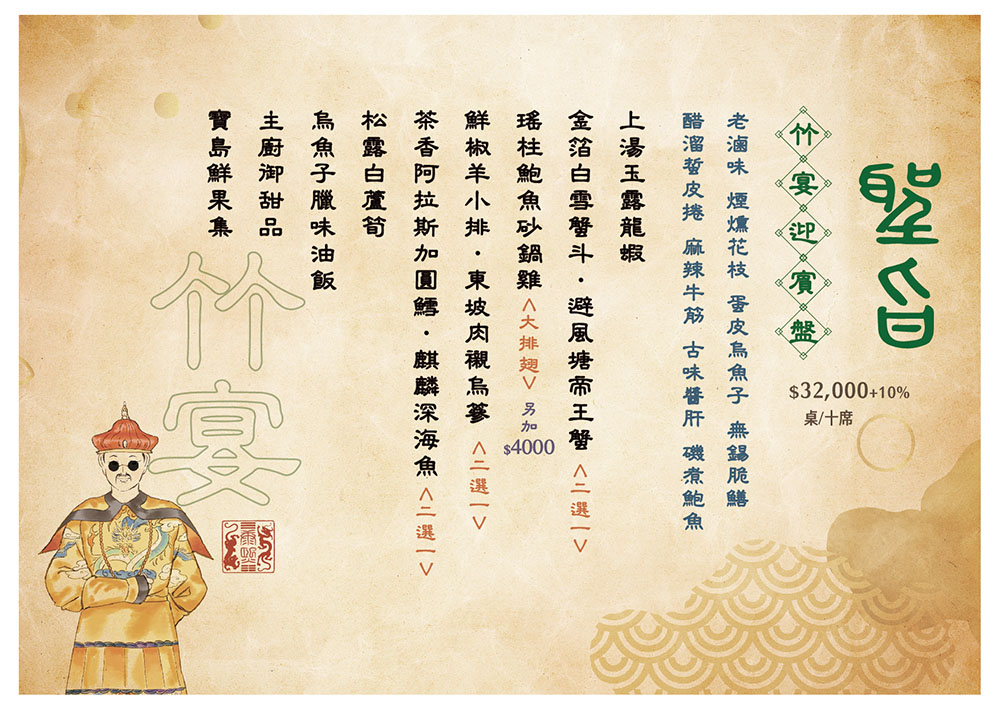 聖旨
$32,000+10%
桌/十席
竹宴迎賓盤
老滷味 煙燻花枝 蛋皮烏魚子 無錫脆鱔
醋溜蜇皮捲 麻辣牛筋 古味醬肝 磯煮鮑魚
上湯玉露龍蝦
金箔白雪蟹斗・避風塘帝王蟹<二選一>
瑤柱鮑魚砂鍋雞<大排翅>另加$4000
鮮椒羊小排・東坡肉襯烏蔘<二選一>
茶香阿拉斯加圓鱈・麒麟深海魚<二選一>
松露白蘆筍
烏魚子臘味油飯
主廚御甜品
寶島鮮果集
竹宴